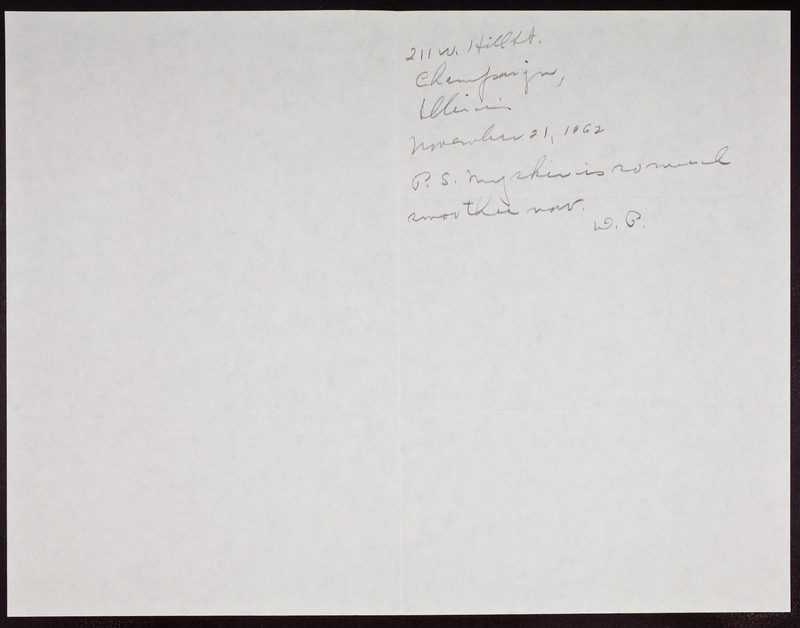 211 W. Hill St.
Champaign,
Illinois
November 21, 1962
P. S. My skin is so much
smoother now.
D. P.